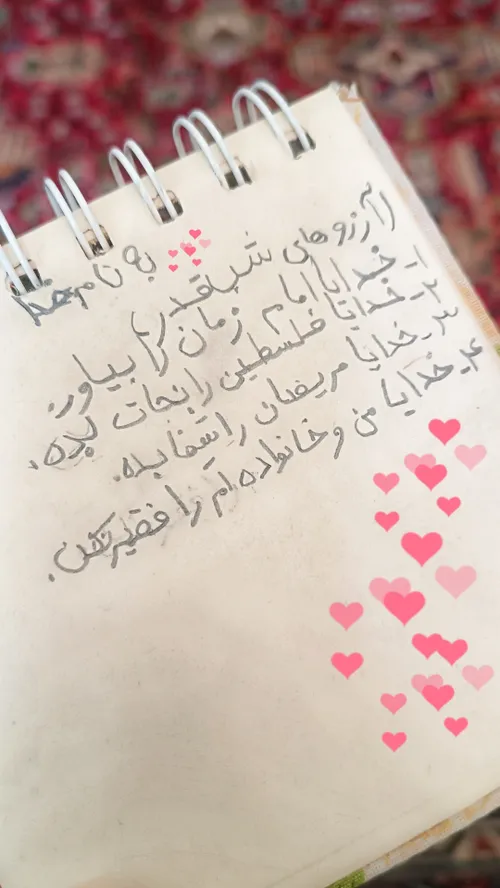 به نام خدا
(آرزوهای شب قدر)
۱- خدایا امام زمان را بیاور.
۲- خدایا فلسطین را نجات بده.
۳- خدایا مریضان را شفا بده.
۴- خدایا من و خانواده ام را فقیر نکن.